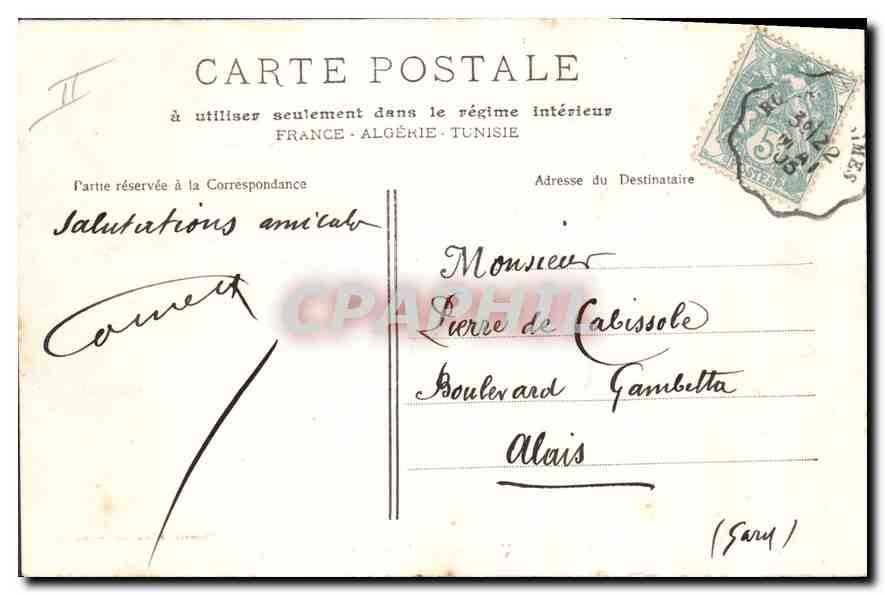 II
CARTE POSTALE
à utiliser seulement dans le régime intérieur
FRANCE - ALGÉRIE - TUNISIE
Partie réservée à la Correspondance
Adresse du Destinataire
5
POSTES
30/22
MAI
05
MES
Salutations amicale
CPAPHIL
Monsieur
Pierre de Cabissole
Boulevard Gambetta
Alais
(Gard)